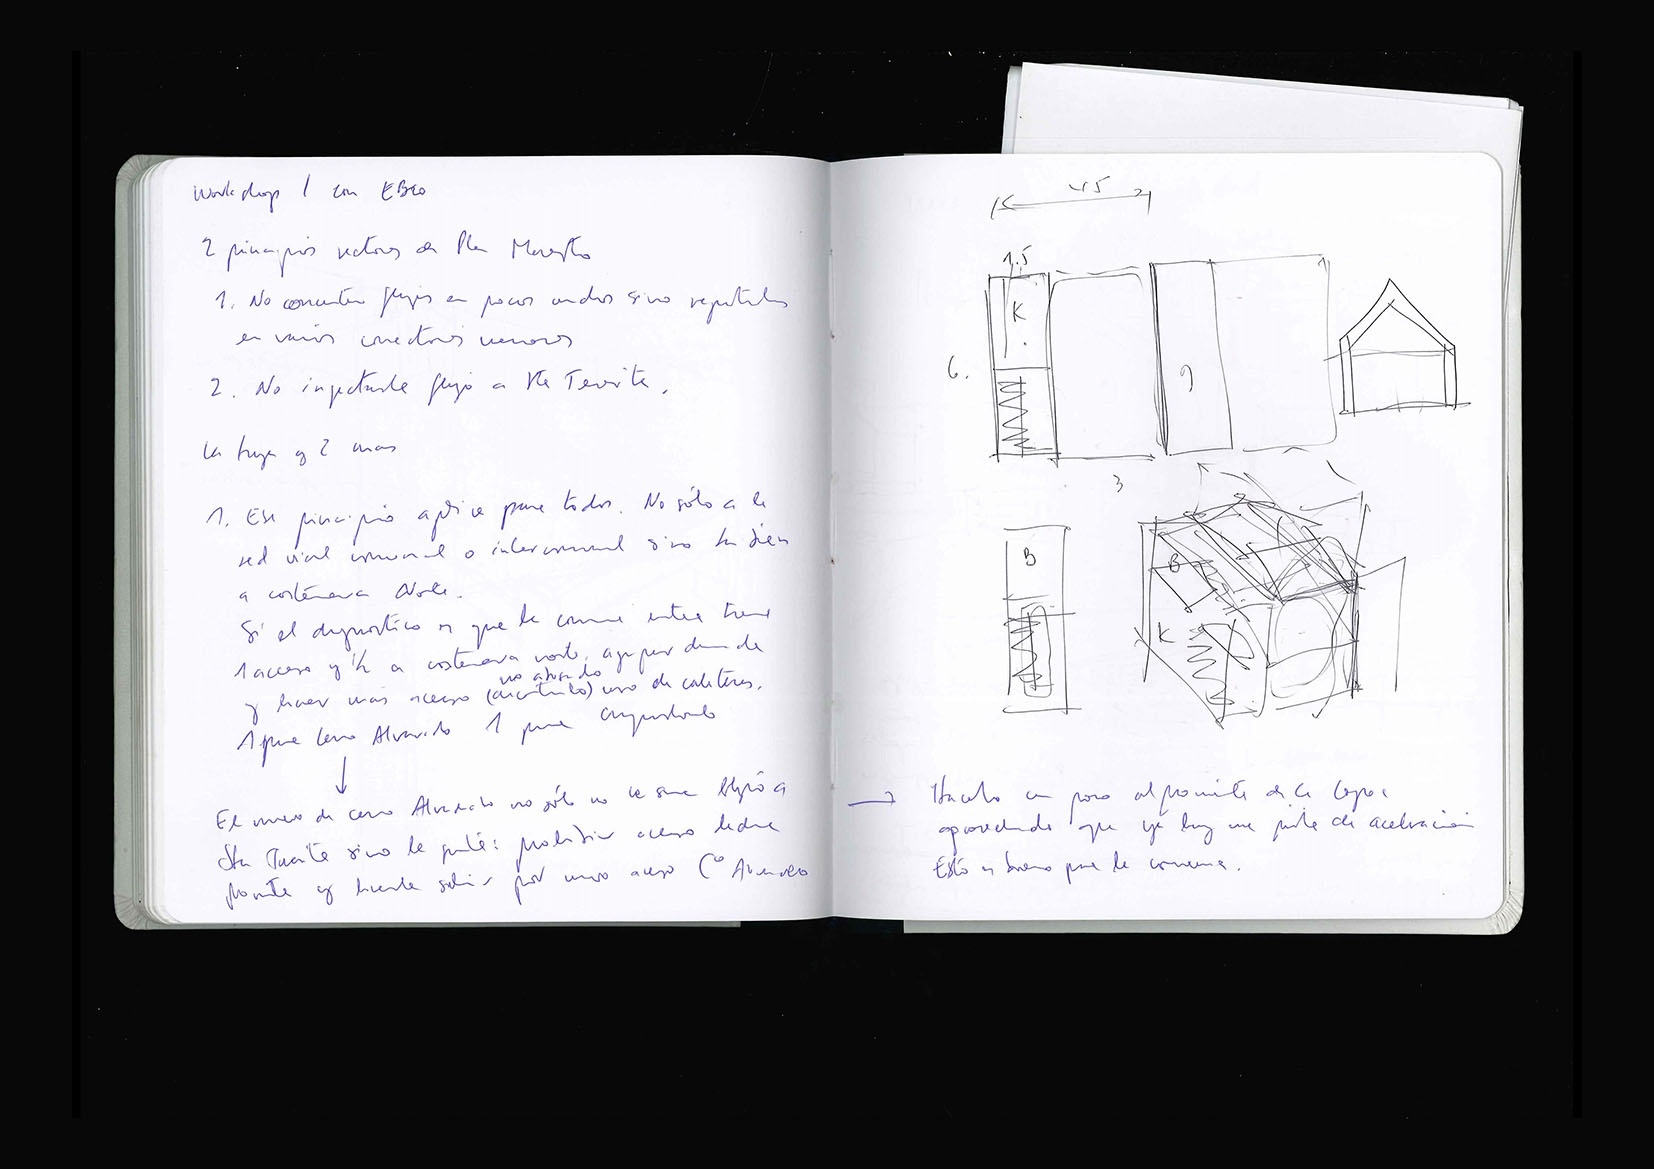 Workshop 1 con EBCO
2 principios rectores de Plan Maestro
1. No concentrar flujos en pocos nudos sino repartirlos
en varios conectores menores
2. No inyectarle flujo a Sta Teresita.
La tuya y 2 mas
1. Ese principio aplica para todos. No sólo a la
red vial comunal o intercomunal sino también
a costanera Norte.
Si el diagnóstico es que la comuna entera tiene
1 acceso y 1/2 a costanera norte,
no atorando
y hacer más acceso uso de caleteras.
1 para Cerro Alvarado 1 para
El nuevo de cerro Alvarado no sólo no le suma flujo a
Sta Teresita sino le quita: prohibir acceso
y hacerla salir por nuevo acceso Cº Alvarado
45
1.5
K
6.
3
B
B
K
Hacerlo un poco al poniente de la
aprovechando que ya hay una pista de aceleración
Esto es bueno para la comuna.